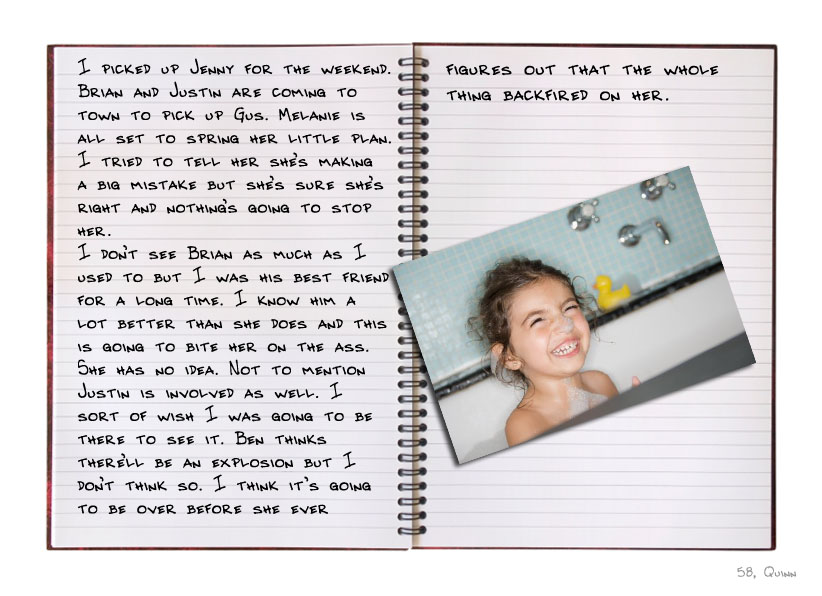 I PICKED UP JENNY FOR THE WEEKEND.
BRIAN AND JUSTIN ARE COMING TO
TOWN TO PICK UP GUS. MELANIE IS
ALL SET TO SPRING HER LITTLE PLAN.
I TRIED TO TELL HER SHE'S MAKING
A BIG MISTAKE BUT SHE'S SURE SHE'S
RIGHT AND NOTHING'S GOING TO STOP
HER.
I DON'T SEE BRIAN AS MUCH AS I
USED TO BUT I WAS HIS BEST FRIEND
FOR A LONG TIME. I KNOW HIM A
LOT BETTER THAN SHE DOES AND THIS
IS GOING TO BITE HER ON THE ASS.
SHE HAS NO IDEA. NOT TO MENTION
JUSTIN IS INVOLVED AS WELL. I
SORT OF WISH I WAS GOING TO BE
THERE TO SEE IT. BEN THINKS
THERE'LL BE AN EXPLOSION BUT I
DON'T THINK SO. I THINK IT'S GOING
TO BE OVER BEFORE SHE EVER
FIGURES OUT THAT THE WHOLE
THING BACKFIRED ON HER.
58, QUINN